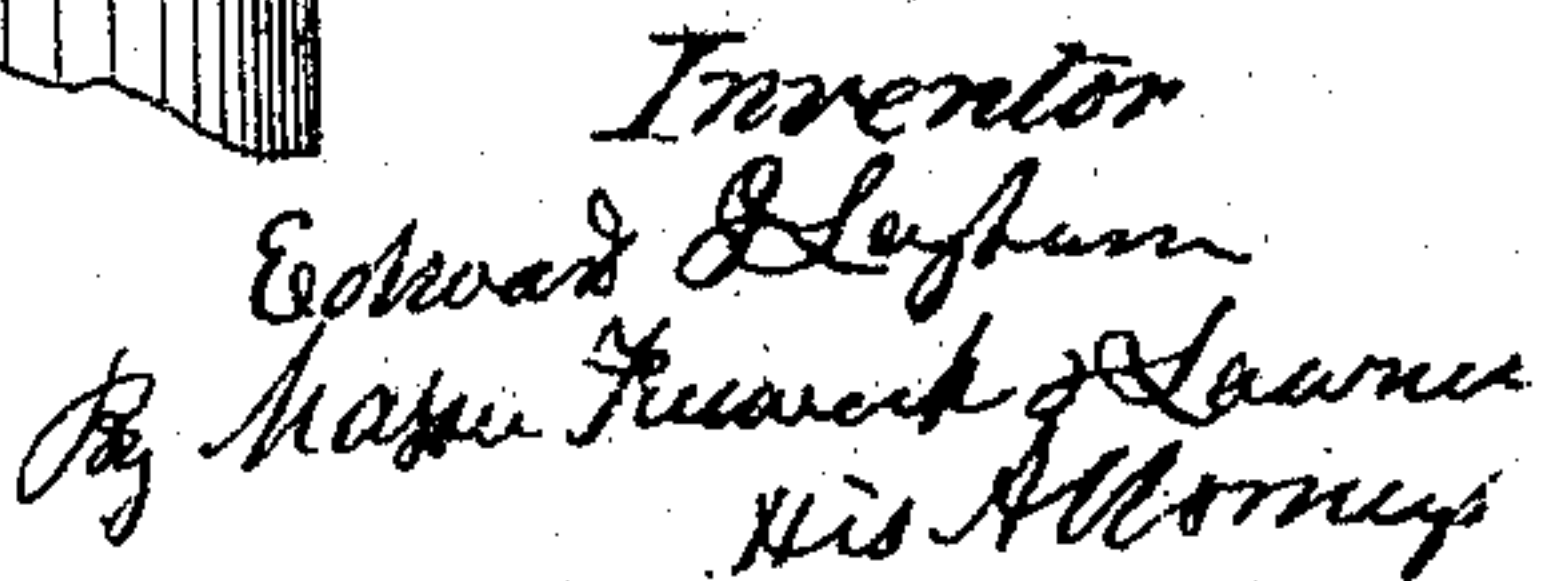 Inventor
Edward J Leyburn
By Mason Fenwick & Lawrence
His Attorneys